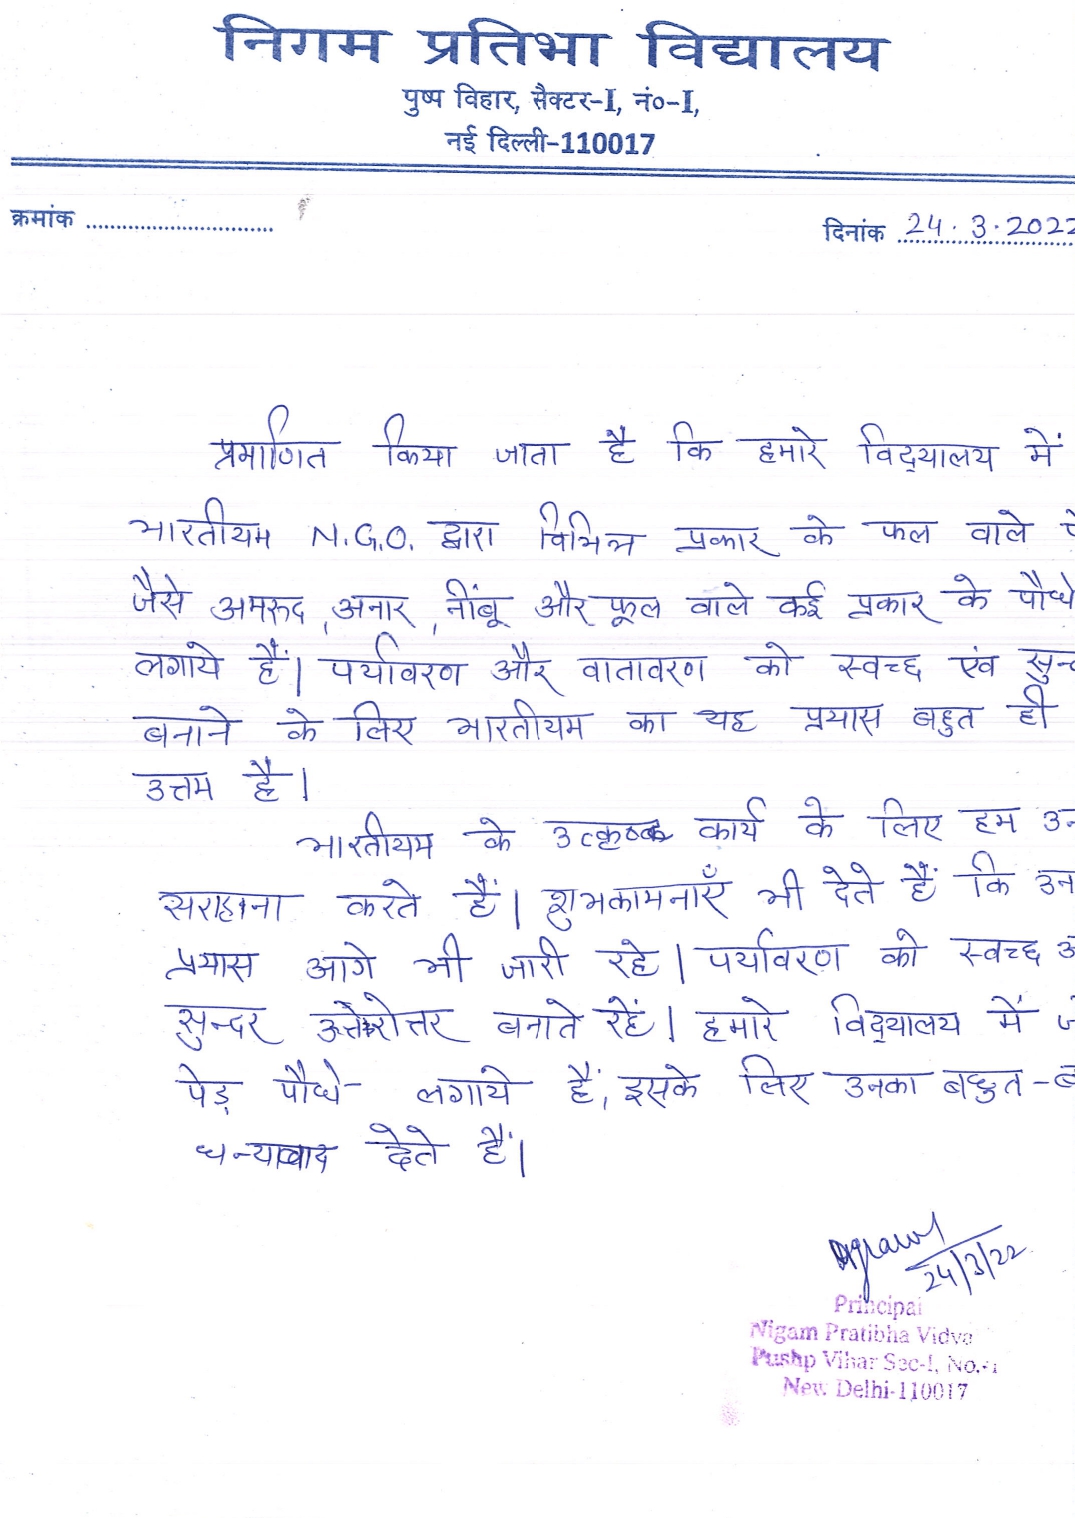 निगम प्रतिभा विद्यालय
पुष्प विहार, सैक्टर-I, नं०-I,
नई दिल्ली-110017
क्रमांक ..............................
दिनांक 24.3.2022
प्रमाणित किया जाता है कि हमारे विद्यालय में
भारतीयम N.G.O. द्वारा विभिन्न प्रकार के फल वाले
जैसे अमरुद, अनार, नींबू और फूल वाले कई प्रकार के पौधे
लगाये हैं। पर्यावरण और वातावरण को स्वच्छ एंव
बनाने के लिए भारतीयम का यह प्रयास बहुत ही
उत्तम है।
भारतीयम के कार्य के लिए हम
सराहना करते हैं। शुभकामनाएँ भी देते हैं कि
प्रयास आगे भी जारी रहे। पर्यावरण को स्वच्छ
सुन्दर उत्तरोत्तर बनाते रहें। हमारे विद्यालय में
पेड़ पौधे लगाये हैं, इसके लिए उनका बहुत-
धन्यावाद देते हैं।
24/3/22
Principal
Nigam Pratibha Vidya
Pushp Vihar Sec-I, No.-1
New Delhi-110017